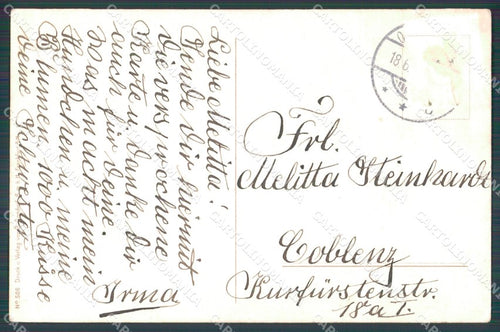 Liebe Melitta!
Sende Dir hiermit
die versprochene
Karte u. danke Dir
auch für Deine.
Was macht mein
Hündchen u. meine
Blumen. 1000 Küsse
Deine Schwester
Irma
Frl.
Melitta Steinhardt
Coblenz
Kurfürstenstr.
18a I.
18.6
No 586 Druck u. Verlag
CARTOLINOMANIA